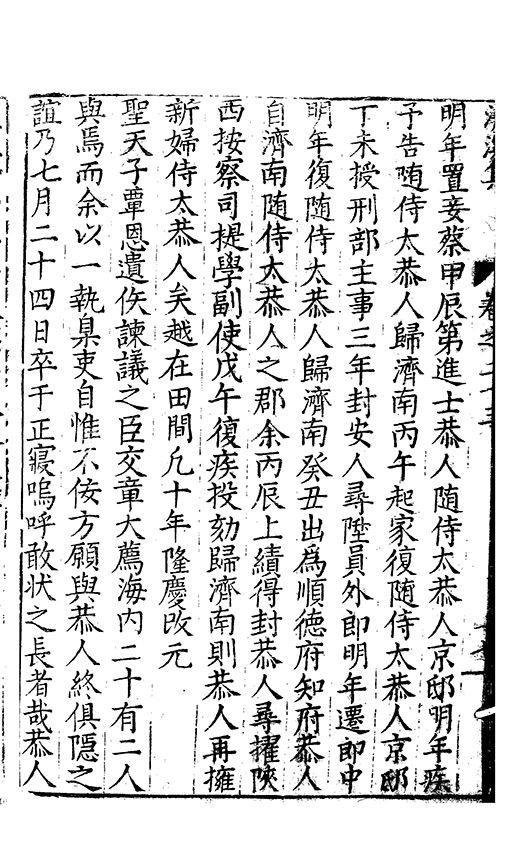 明年置妾蔡甲辰第進士恭人隨侍太恭人京邸明年疾
予告隨侍太恭人歸濟南丙午起家復隨侍太恭人京邸
丁未授刑部主事三年封安人尋陞員外郎明年遷郎中
明年復隨侍太恭人歸濟南癸丑出為順德府知府恭人
自濟南隨侍太恭人之郡余丙辰上績得封恭人尋擢陝
西按察司提學副使戊午復疾投劾歸濟南則恭人再擁
新婦侍太恭人矣越在田間凡十年隆慶改元
聖天子覃恩遺佚諫議之臣交章大薦海內二十有二人
與焉而余以一執臬吏自惟不佞方願與恭人終俱隱之
誼乃七月二十四日卒于正寢嗚呼敢狀之長者哉恭人